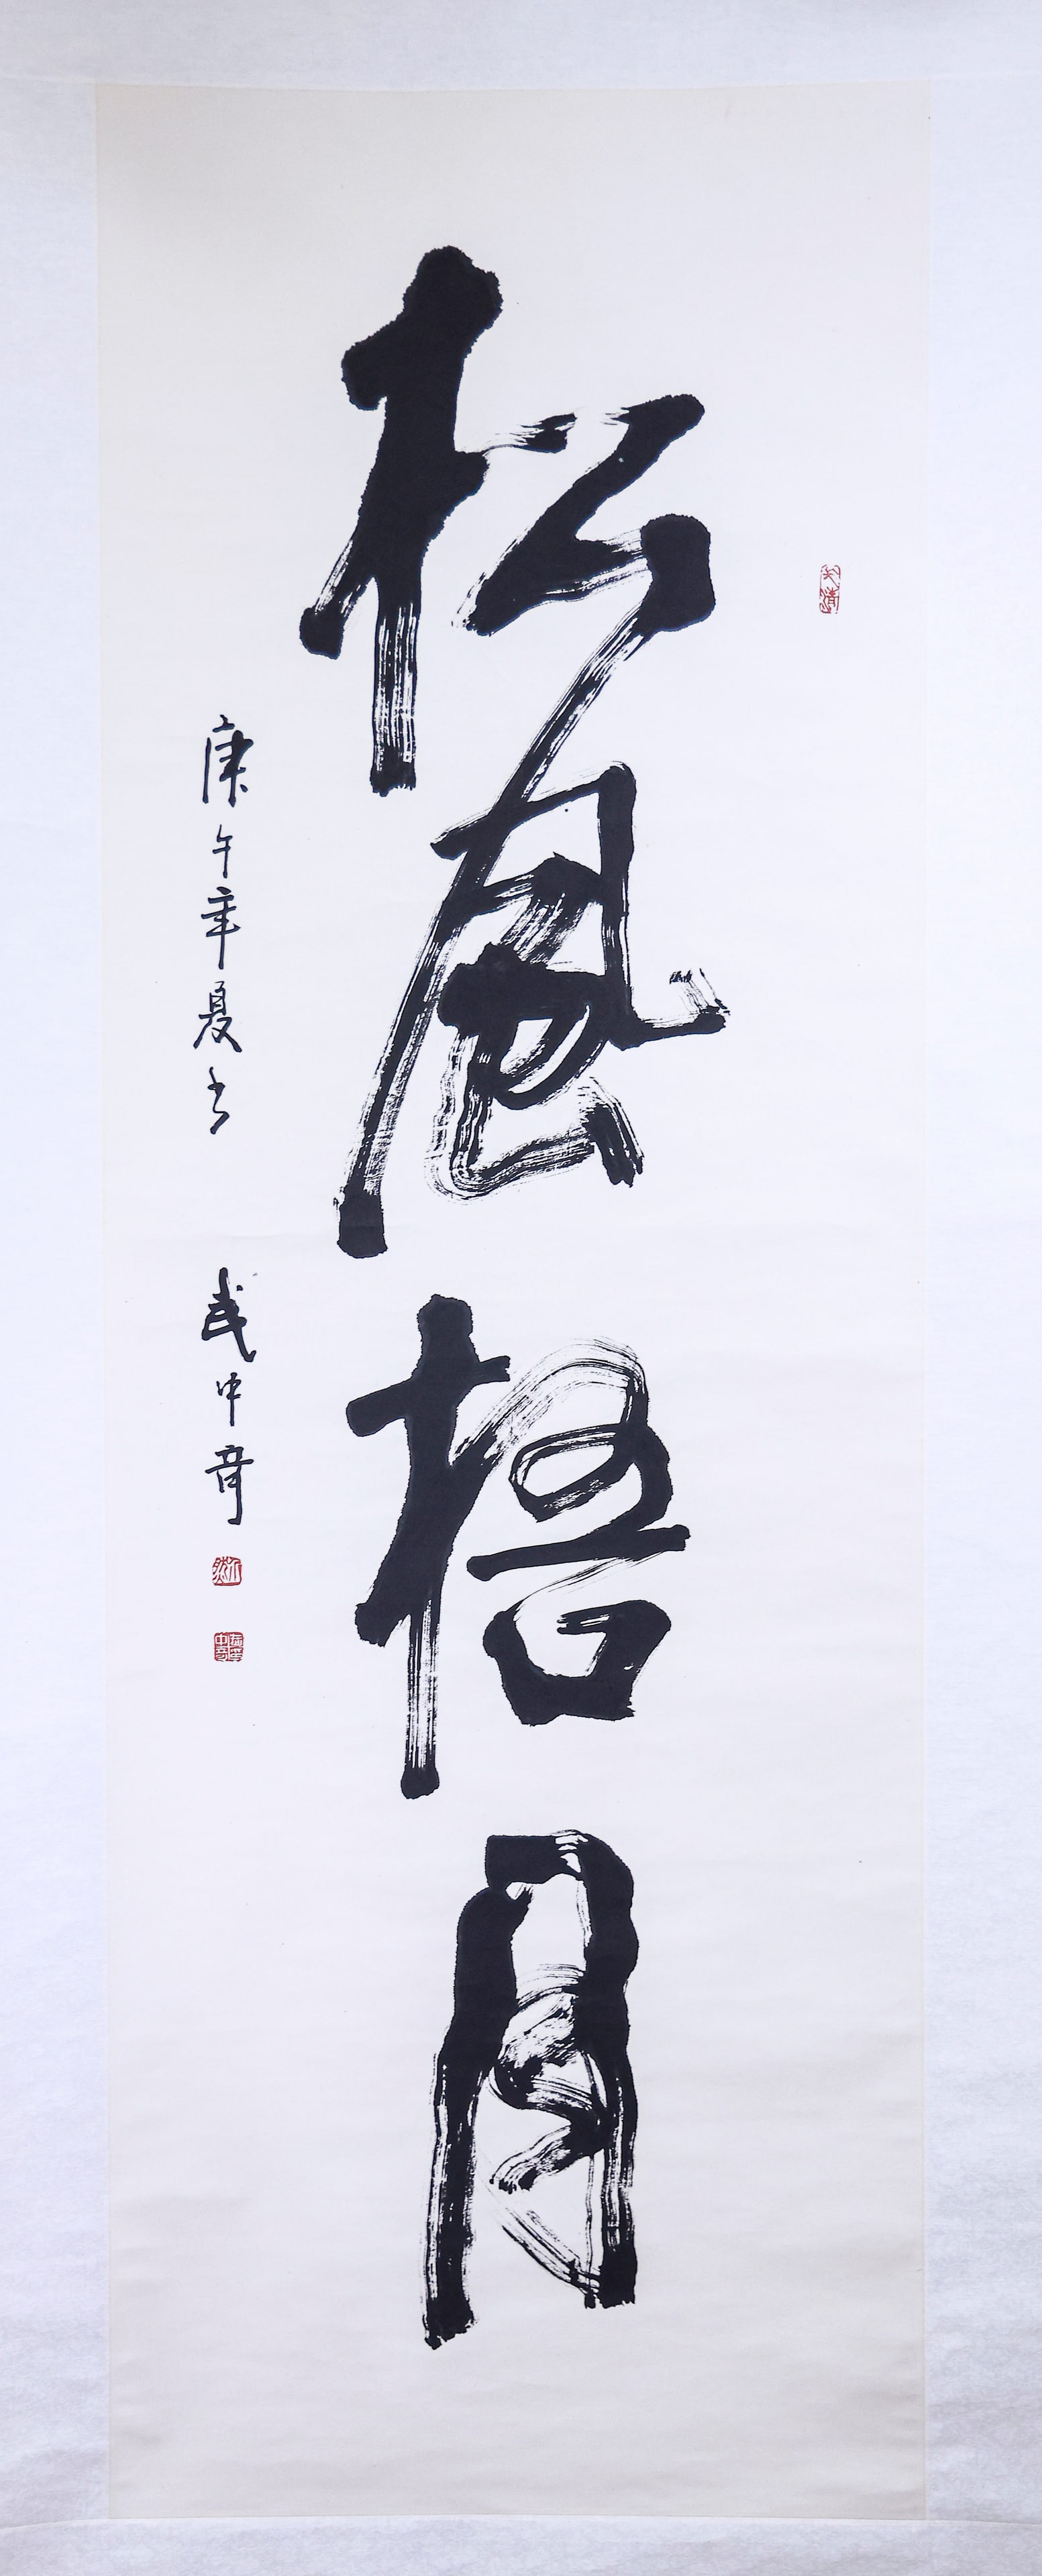 松风梧月
庚午年夏书
武中奇